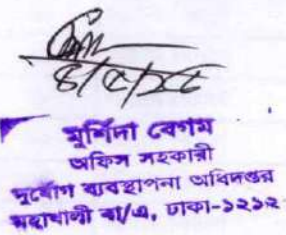 ৪/৫/২৫
মুর্শিদা বেগম
অফিস সহকারী
দুর্যোগ ব্যবস্থাপনা অধিদপ্তর
মহাখালী বা/এ, ঢাকা-১২১২